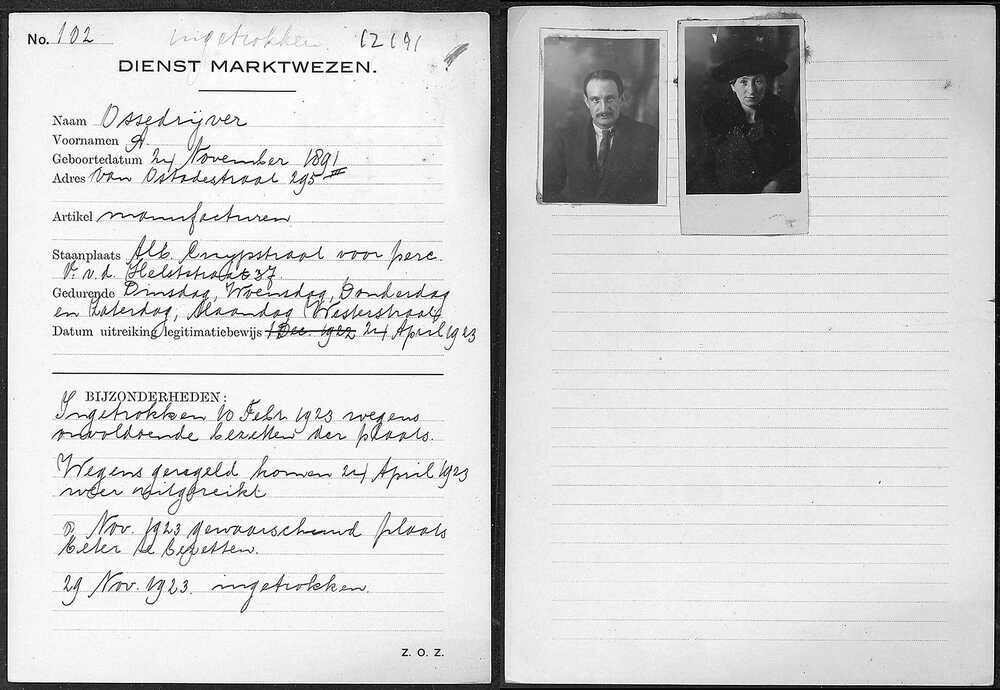 No. 102 Ingetrokken 12191
DIENST MARKTWEZEN.
Naam Ossedrijver
Voornamen A.
Geboortedatum 24 November 1891
Adres van Ostadestraat 295 III
Artikel manufacturen
Staanplaats Alb. Cuypstraat voor perc.
v. v.d. Helststraat 37.
Gedurende Dinsdag, Woensdag, Donderdag
en Zaterdag, Maandag Westerstraat
Datum uitreiking legitimatiebewijs 1 Dec. 1922 24 April 1923
BIJZONDERHEDEN:
Ingetrokken 10 Febr. 1923 wegens
onvoldoende bezetten der plaats.
Wegens geregeld komen 24 April 1923
weer uitgereikt
Nov. 1923 gewaarschuwd plaats
beter te bezetten.
29 Nov. 1923. ingetrokken.
Z. O. Z.